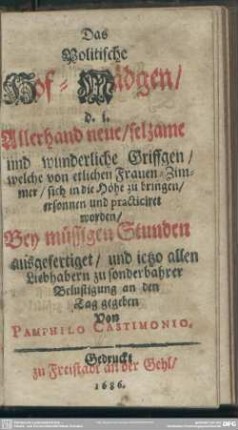 Das
Politische
Hof-Mädgen/
d. i.
Allerhand neue/selzame
und wunderliche Griffgen/
welche von etlichen Frauen-Zim-
mer/sich in die Höhe zu bringen/
ersonnen und practiciret
worden/
Bey müssigen Stunden
ausgefertiget/ und ietzo allen
Liebhabern zu sonderbahrer
Belustigung an den
Tag gegeben
Von
PAMPHILO CASTIMONIO.
Gedruckt
zu Freistadt an der Gehl/
1686.